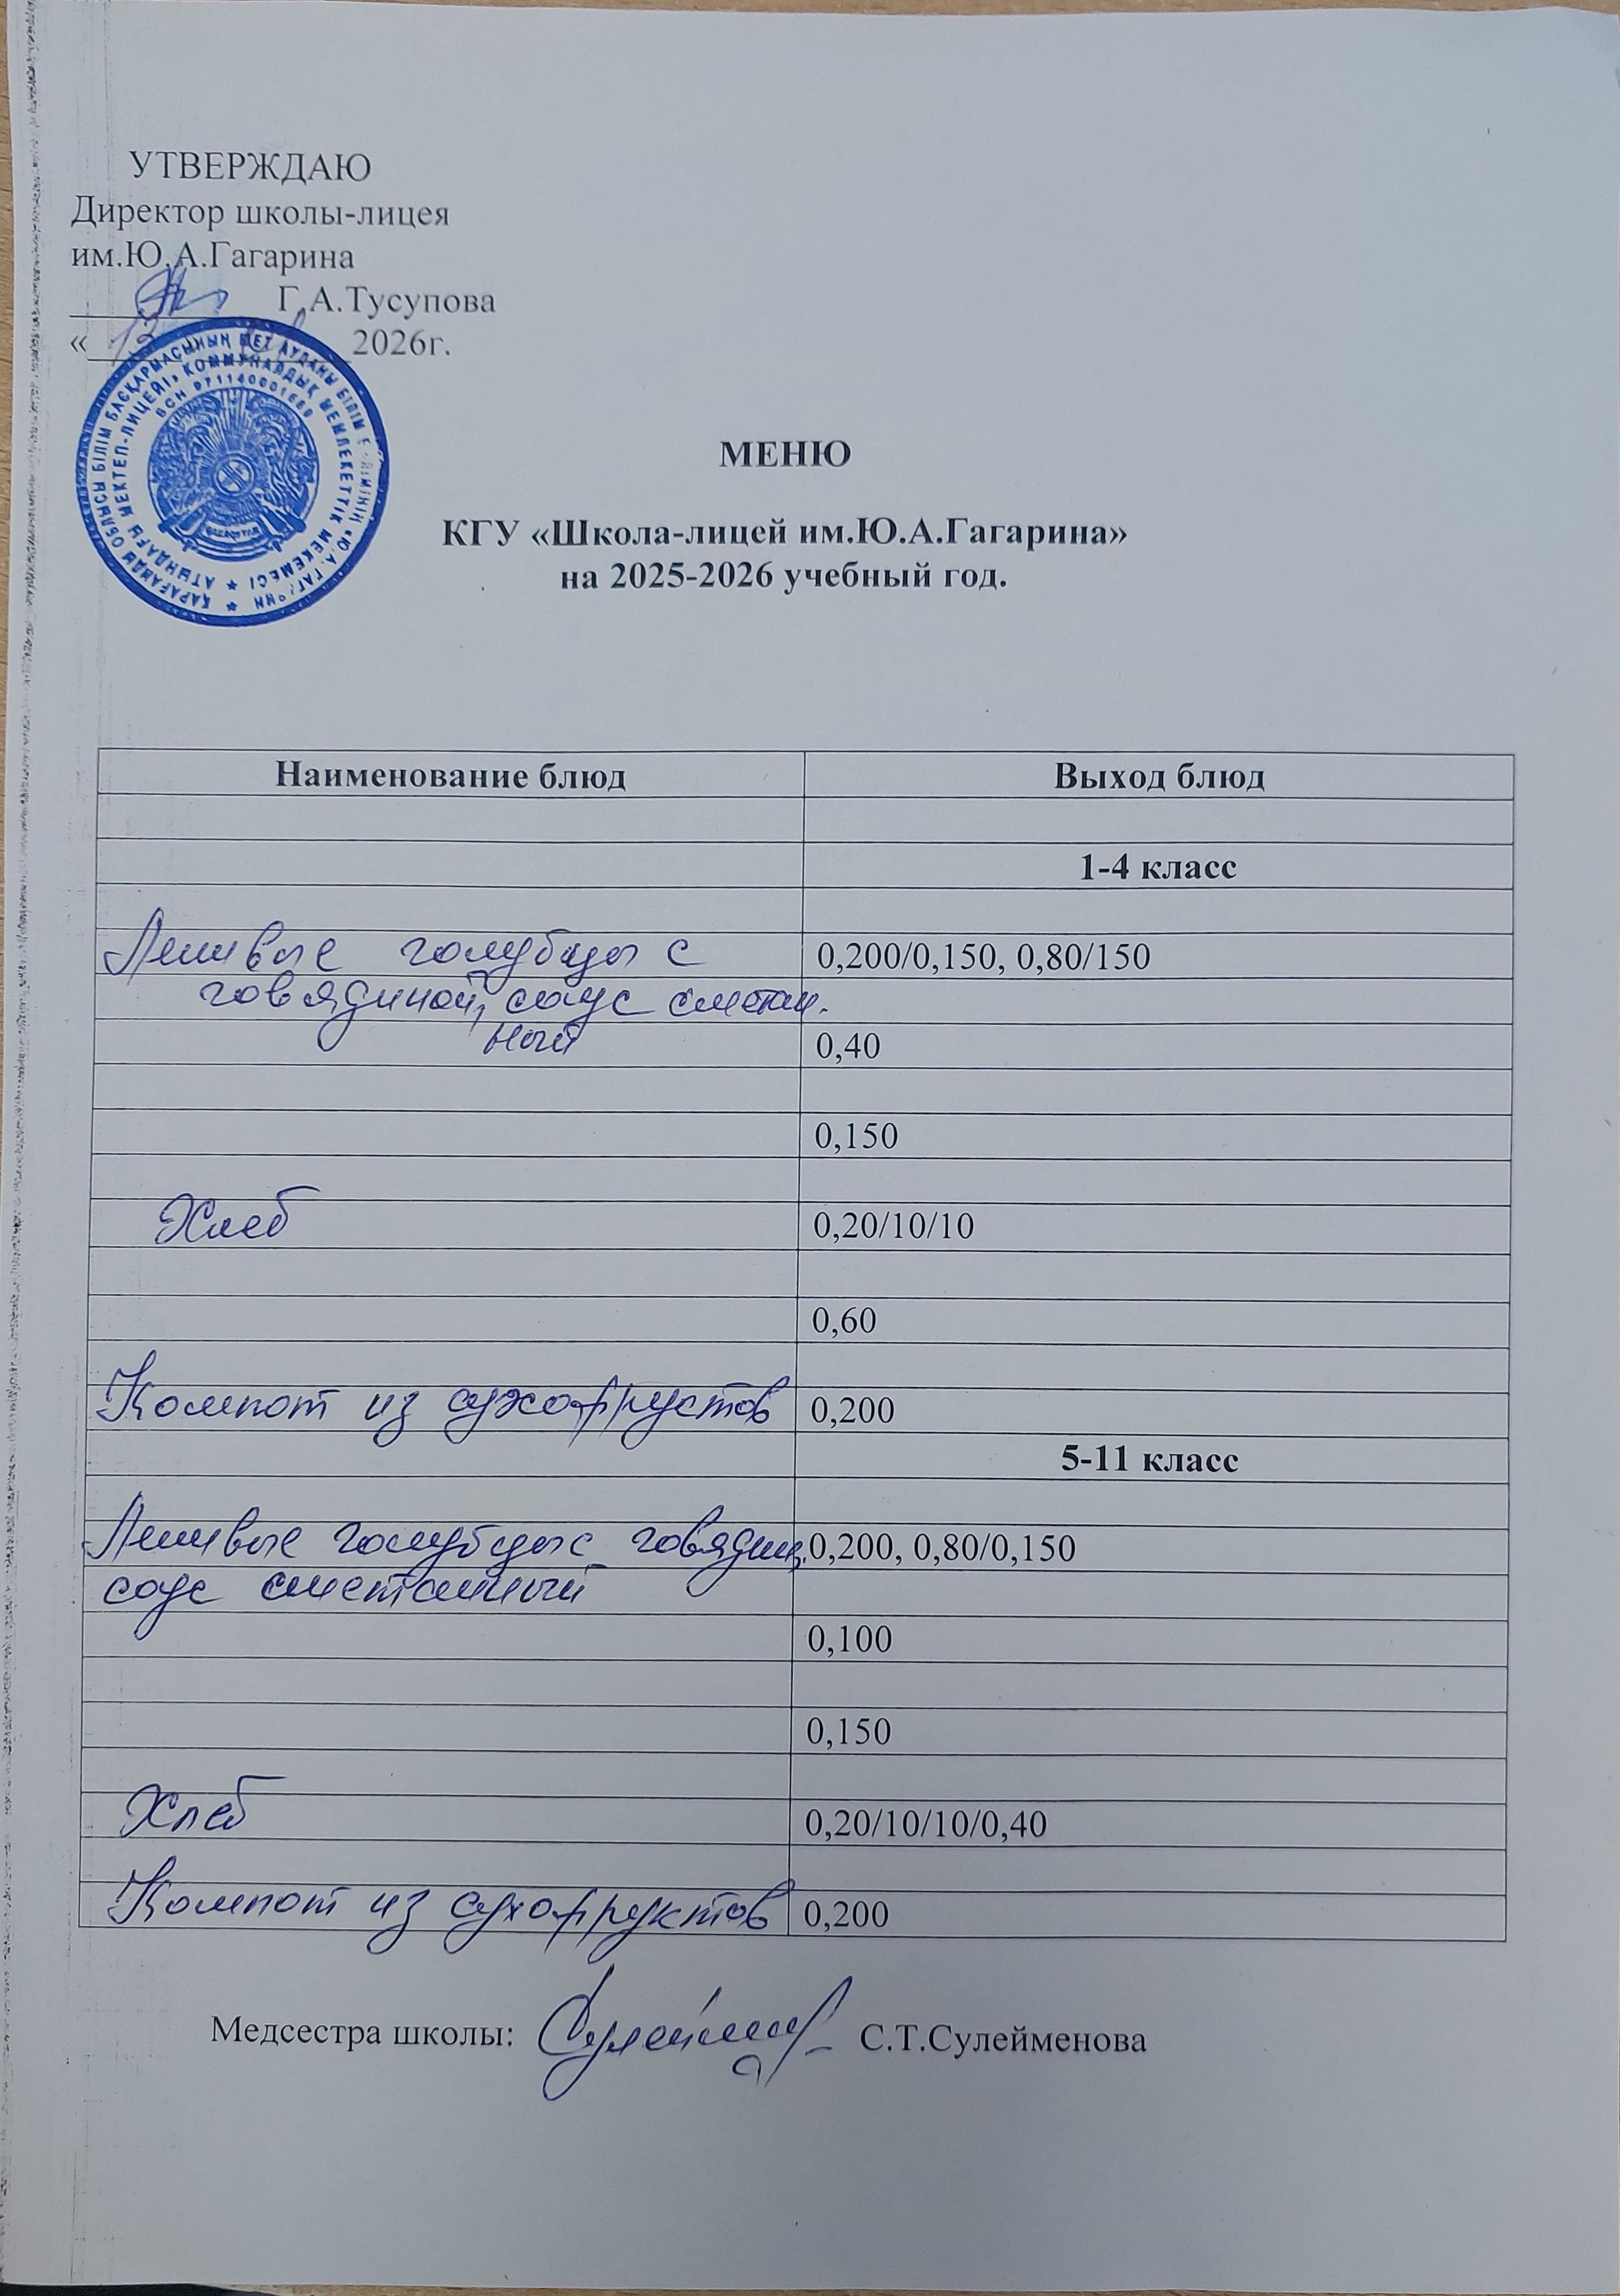 УТВЕРЖДАЮ
Директор школы-лицея
им.Ю.А.Гагарина
Г.А.Тусупова
« 2026г.
ҚАРАҒАНДЫ ОБЛЫСЫ БІЛІМ БАСҚАРМАСЫНЫҢ ШЕТ АУДАНЫ БІЛІМ БӨЛІМІНІҢ «Ю.А. ГАГАРИН
АТЫНДАҒЫ МЕКТЕП-ЛИЦЕЙІ» КОММУНАЛДЫҚ МЕМЛЕКЕТТІК МЕКЕМЕСІ
БСН
ҚАЗАҚСТАН
МЕНЮ
КГУ «Школа-лицей им.Ю.А.Гагарина»
на 2025-2026 учебный год.
Наименование блюд Выход блюд
1-4 класс
Ленивые голубцы с 0,200/0,150, 0,80/150
говядиной, соус сметан-
ный 0,40
0,150
Хлеб 0,20/10/10
0,60
Компот из сухофруктов 0,200
5-11 класс
Ленивые голубцы с говядин, 0,200, 0,80/0,150
соус сметанный
0,100
0,150
Хлеб 0,20/10/10/0,40
Компот из сухофруктов 0,200
Медсестра школы: С.Т.Сулейменова